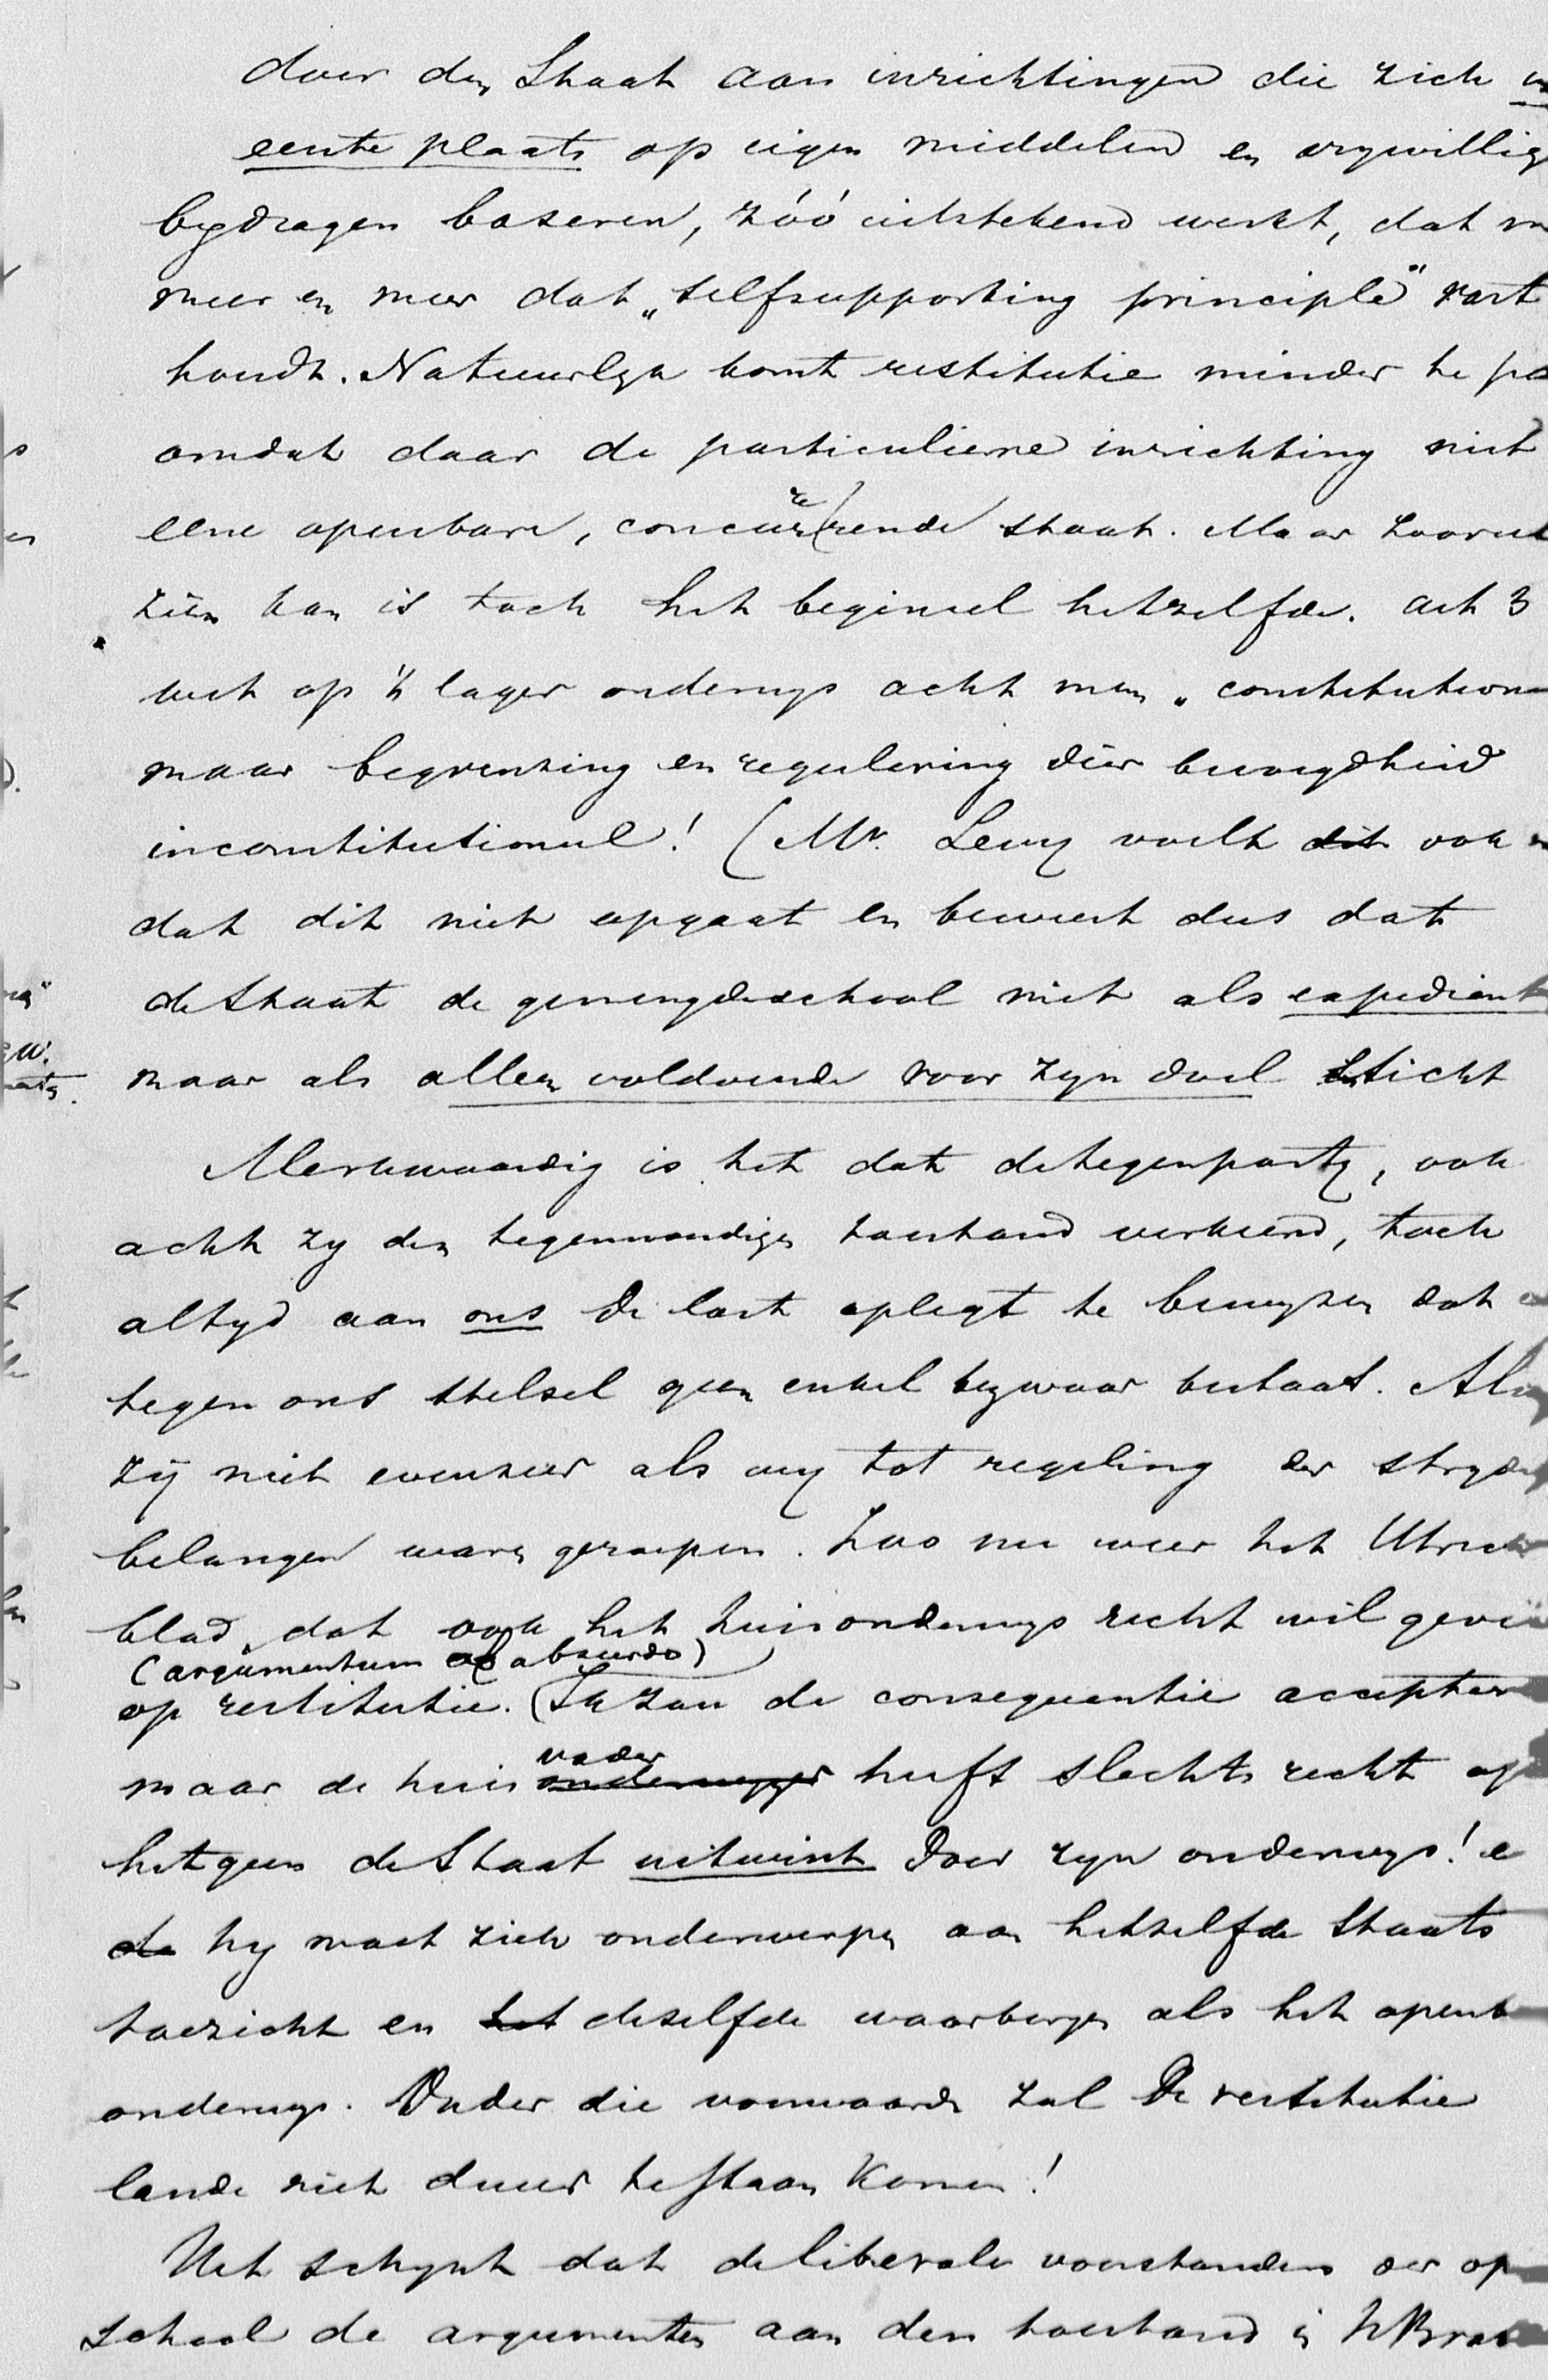 door den Staat aan inrichtingen die zich
eerste plaats op eigen middelen en vrywillig
bydragen baseren, zóó uitstekend werkt, dat m
meer en meer dat „selfsupporting principle" vast
houdt. Natuurlyk komt restitutie minder te pa
omdat daar de particuliere inrichting niet
eene openbare, concurreerende staat. Maar zooveel
zien kan is toch het beginsel hetzelfde. Art 3
wet op 't lager onderwys acht men „constitution
maar begrenzing en regulering dier bevoegdheid
inconstitutioneel! (Mr. Levy voelt dit ook
dat dit niet opgaat en beweert dus dat
de Staat de gemengde school niet als expedient
maar als alleen voldoende voor zyn doel sticht
Merkwaardig is het dat de tegenparty, ook
acht zy den tegenwoordigen toestand verkeerd, toch
altyd aan ons de last oplegt te bewyzen dat
tegen ons stelsel geen enkel bezwaar bestaat. Als
zij niet evenzeer als wy tot regeling der stryde
belangen waren geroepen. Zoo nu weer het Utrech
blad, dat ook het huisonderwys recht wil geven
(argumentum ab absurdo)
op restitutie. (Ik zou de consequentie accepteren
maar de huisvader heeft slechts recht op
hetgeen de Staat uitwint door zyn onderwys! e
de hy moet zich onderwerpen aan hetzelfde Staats
toezicht en het dezelfde waarborgen als het openb
onderwys. Onder die voorwaarde zal de restitutie
lande niet duur te staan komen!
Het schynt dat de liberale voorstanders der op
school de argumenten aan den toestand in NBra